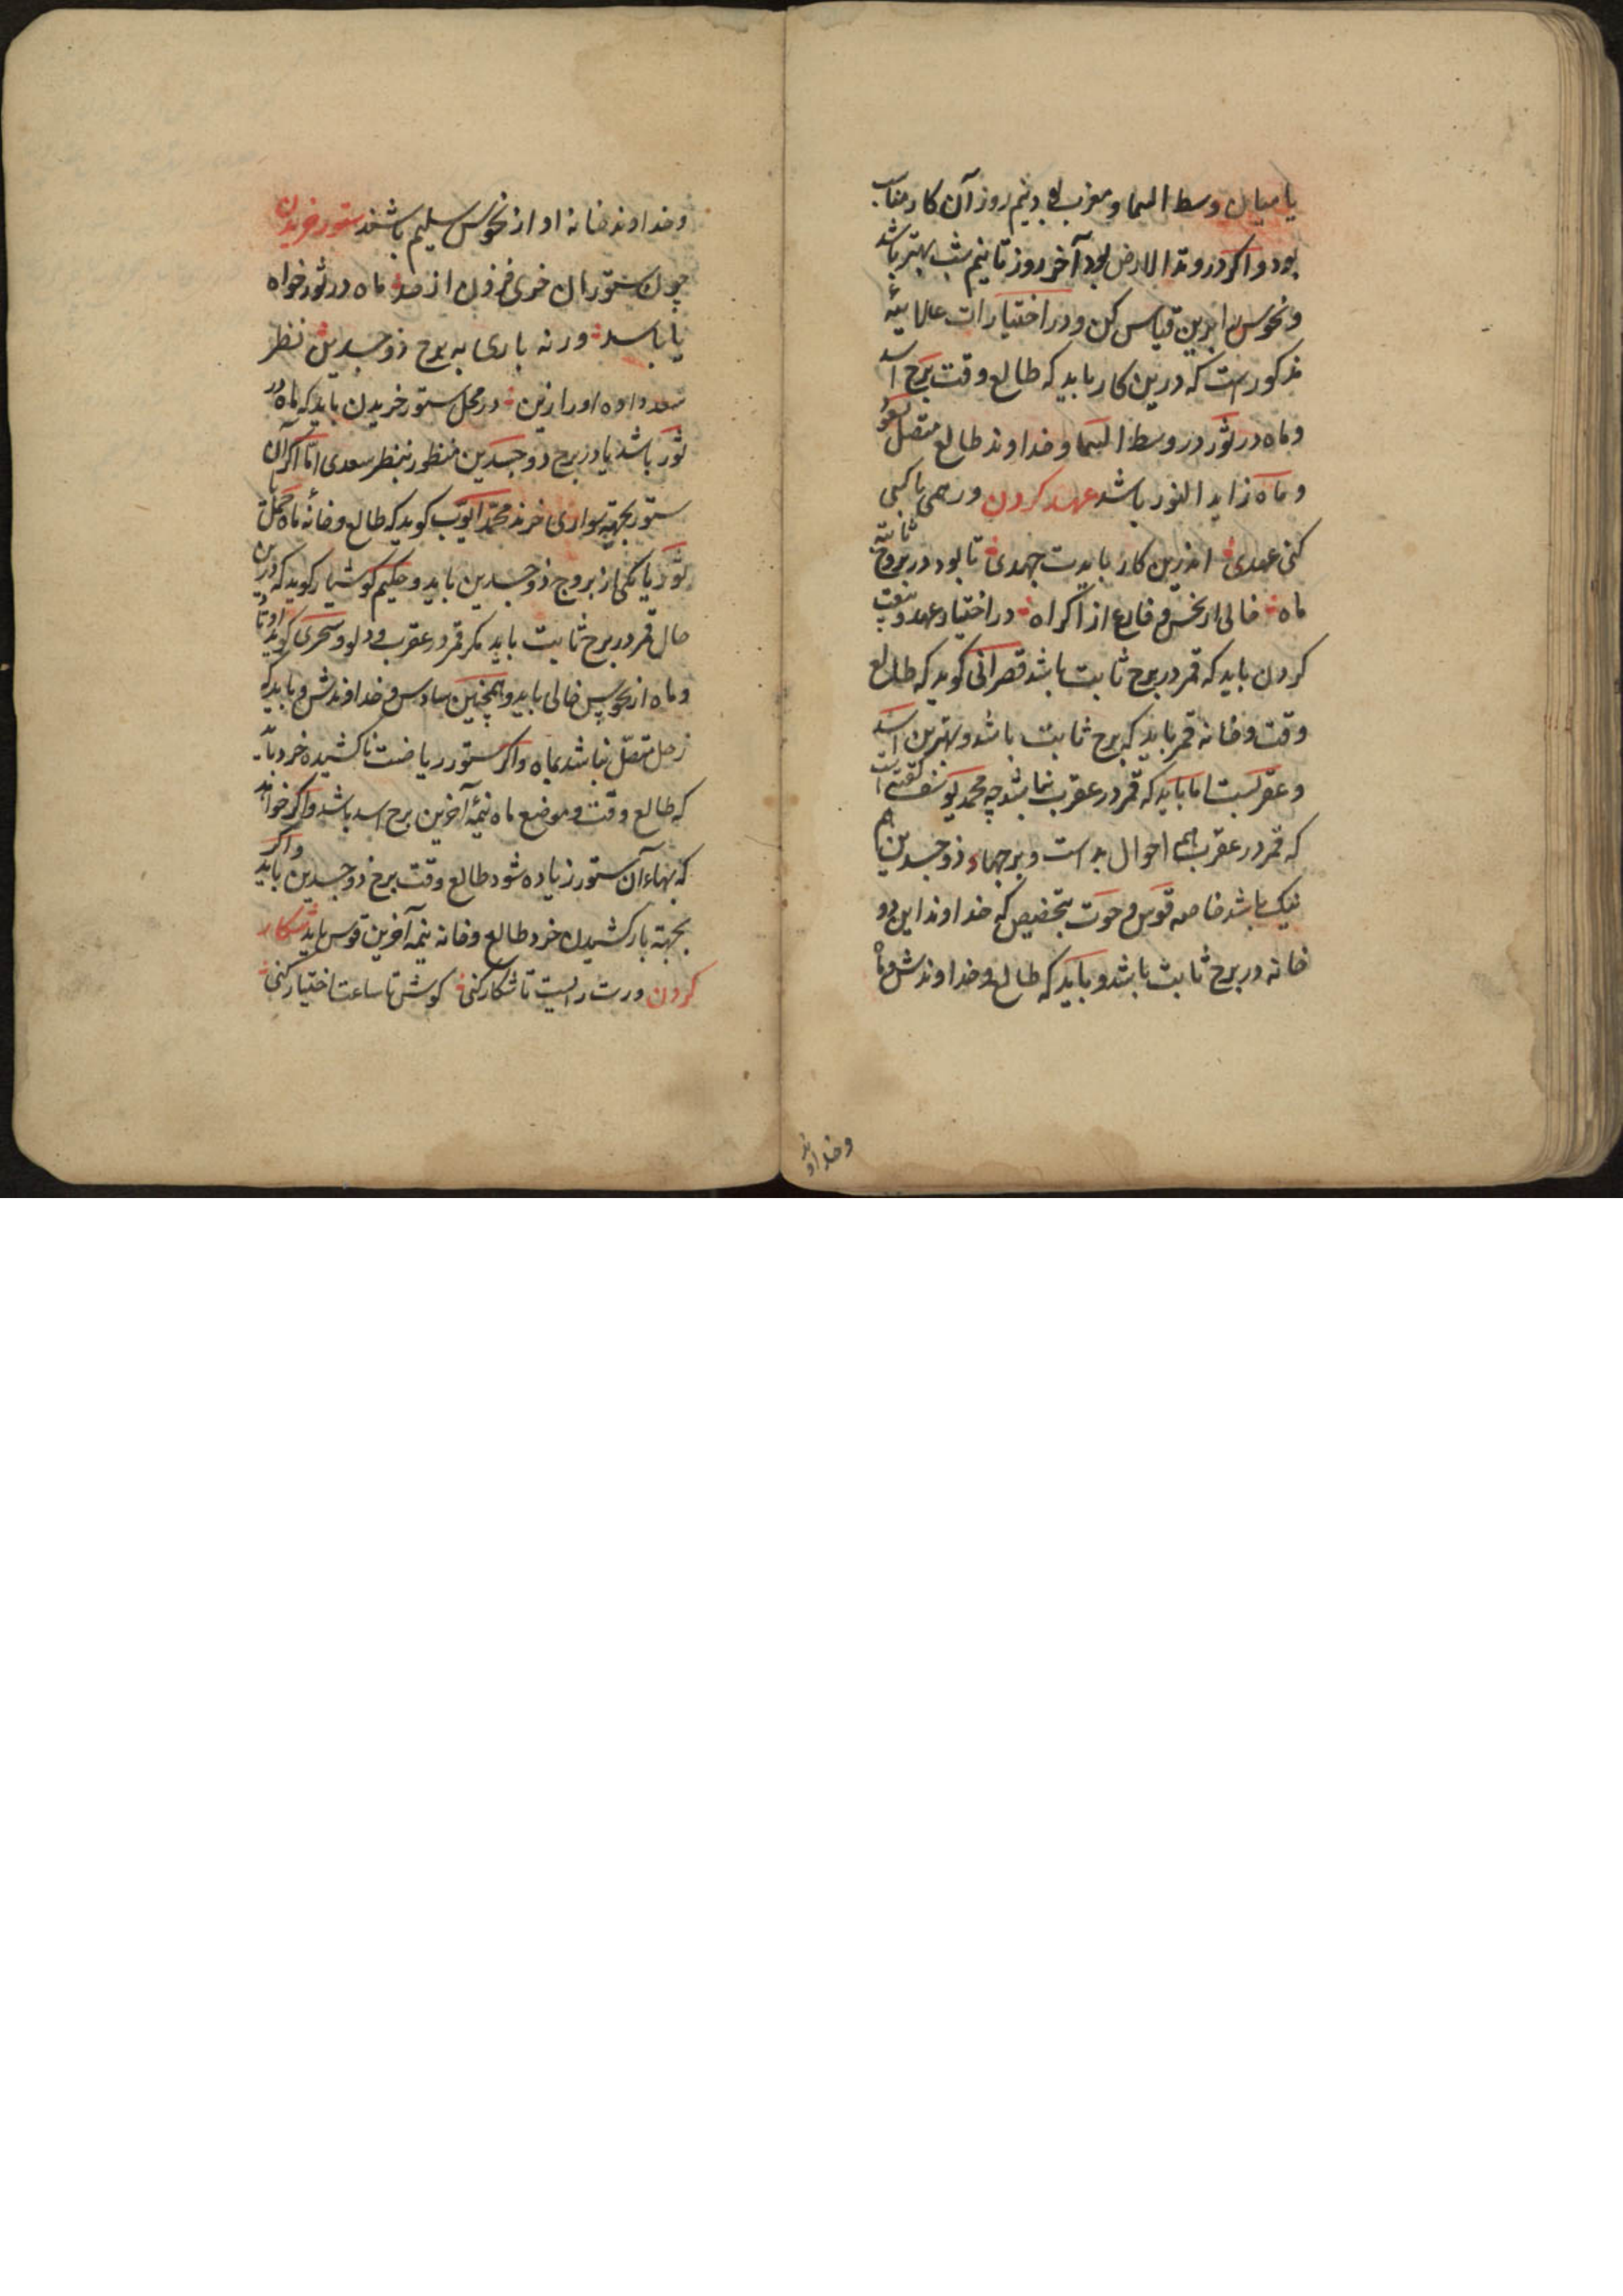 یا میان وسط السما و مغرب بود نیم روز آن کار مناسب
بود و اگر در وتد الارض بود آخر روز تا نیم شب بهتر باشد
و نحوس را برین قیاس کن و در اختیارات علائیه
مذکورست که درین کار باید که طالع وقت برج اسد
و ماه در ثور در وسط السما و خداوند طالع متصل بعلو
و ماه زاید النور باشد عهد کردن ور همی با کسی
کنی عهدی اندرین کار بایدت جهدی تا بود در بروج ثابته
ماه خالی از نحس و فارغ از اکراه در اختیار عهد و بیعت
کردن باید که قمر در برج ثابت باشد قصرانی کوید که طالع
وقت و خانه قمر باید که برج ثابت باشد و بهترین اسد
و عقربست اما باید که قمر در عقرب نباشد چه محمد یوسف گفته است
که قمر در عقرب همه احوال بد است و برجهاء ذو جسدین هم
نیک باشد خاصه قوس و حوت بتخصیص که خداوند این دو
خانه در برج ثابت باشد و باید که طالع و خداوندش و ماه
وخداوند
و خداوند خانه او از نحوس سلیم باشند ستور خریدن
چون ستوران خری فزون از صد ماه در ثور خواه
یا باسد ورنه باری به برج ذو جسدین نظر
سعد داده او را زین در محل ستور خریدن باید که ماه در
ثور باشد یا در برج ذو جسدین منظور بنظر سعدی اما اگر آن
ستور بجهته سواری خرند محمد ایوب کوید که طالع و خانه ماه حمل یا
ثور یا یکی از بروج ذو جسدین باید و حکیم کوشیار کوید که درین
حال قمر در برج ثابت باید مکر قمر در عقرب و دلو و سجزی کوید اوتاد
و ماه از نحوس خالی باید و همچنین سادس و خداوندش و باید که
زحل متصل نباشد بماه و اگر ستور ریاضت ناکشیده خرد باید
که طالع وقت و موضع ماه نیمۀ آخرین برج اسد باشد و اگر خواهد
که بهاء آن ستور زیاده شود طالع وقت برج ذو جسدین باید و اگر
بجهته بار کشیدن خرد طالع و خانه نیمه آخرین قوس باید شکار
کردن ورت رایست تا شکار کنی کوش تا ساعت اختیار کنی